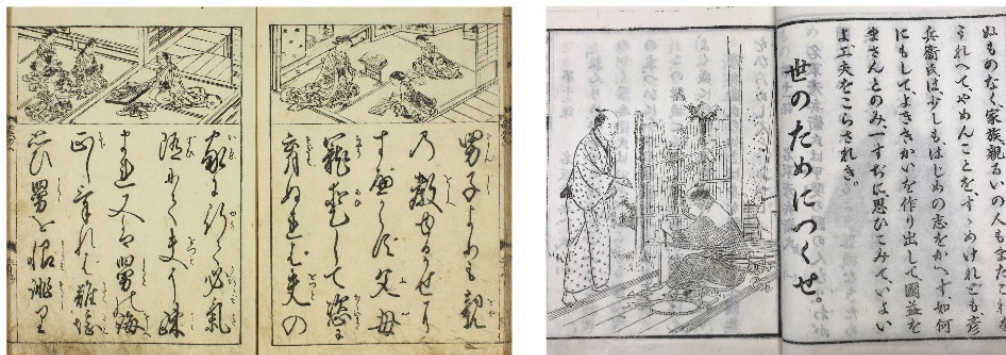 男子よりも親
の教ゆるがせに
すべからず父母
寵愛して恣に
育ぬれば夫の
家に行て必氣
随にて夫に疎
まれ又は舅の誨
正しければ難堪
思ひ舅を恨誹り
ぬものなく家族親るいの人も
うれへて、やめんことを、すゝめけれども、彦
兵衞氏は、少しもはじめの志をかへす、如何
にもして、よききかいを作り出して國益を
まさんとのみ、一すぢに思ひてゐて、いよい
よ工夫をこらされき。
世のためにつくせ。